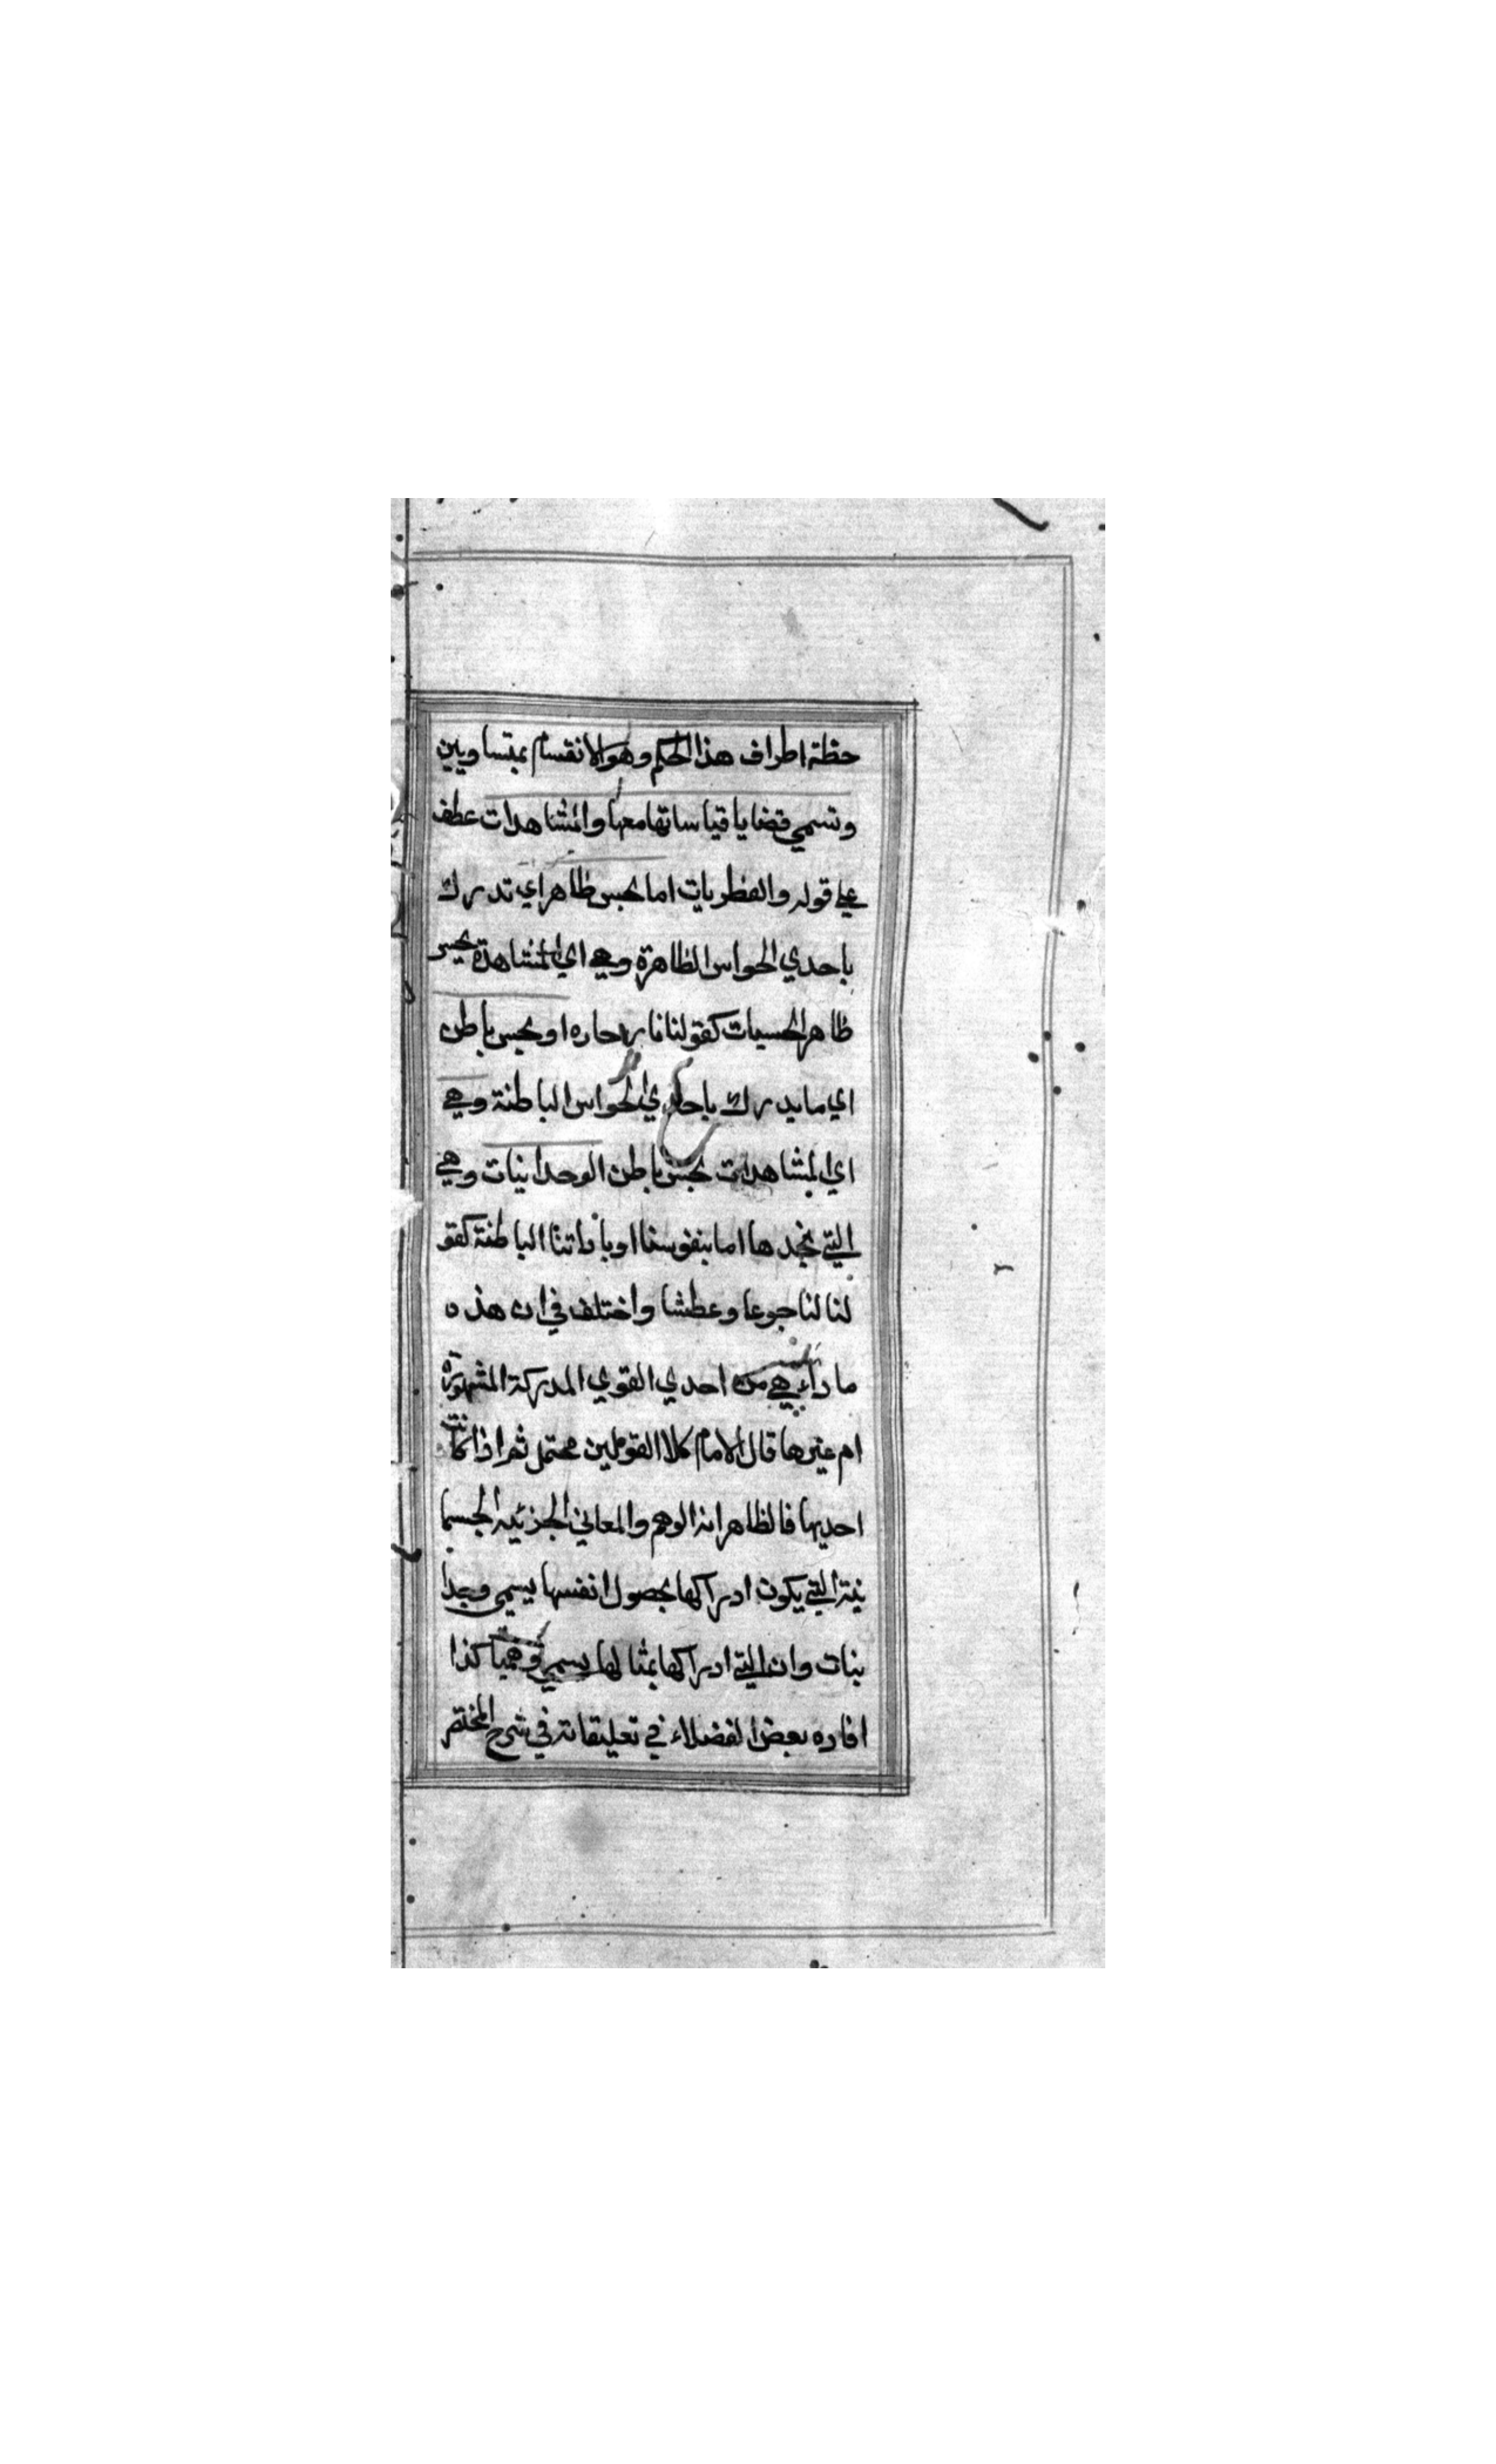 حظة اطراف هذا الحكم وهو الانقسام بمتساويين
وتسمي قضايا قياساتها معها والمشاهدات عطف
علي قوله والفطريات اما بحس ظاهر اي تدرك
باحدي الحواس الظاهرة وهي اي المشاهدة بحس
ظاهر الحسيات كقولنا نار حاره او بحس باطن
اي ما يدرك باحدي الحواس الباطنة وهي
اي المشاهدات بحس باطن الوجدانيات وهي
التي نجدها اما بنفوسنا او باداتنا الباطنة كقو
لنا لنا جوعا وعطشا واختلف في ان هذه
ما داء هي من احدي القوي المدركة المشهورة
ام غيرها قال الامام كلا القولين محتمل ثم اذا كانت
احديها فالظاهر انه الوهم والمعاني الجزئيه الجسما
نية التي يكون ادراكها بحصول انفسها يسمي وجدا
نيات وان التي ادراكها بمثالها يسمي وهميا كذا
افاده بعض الفضلاء في تعليقاته في شرح المختصر